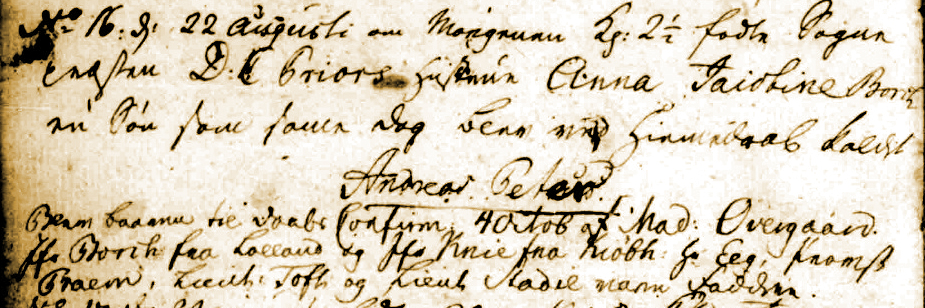 No 16. d. 22 Augusti om Morgenen Kl: 2½ fødte Sogne
Præsten D: Priors Hustrue Anna Jacobine Borch
en Søn som samme dag blev ved Hiemmedaab kaldet
Andreas Petrus.
Blev baaren til daabs Confirm. 4 Octob af Mad: Overgaard.
Jfr Borch fra Lolland og Jfr fra Kiøbh: Hr Eeg,
Praem, Lieut: Toft og Lieut Stadie vare Faddere.